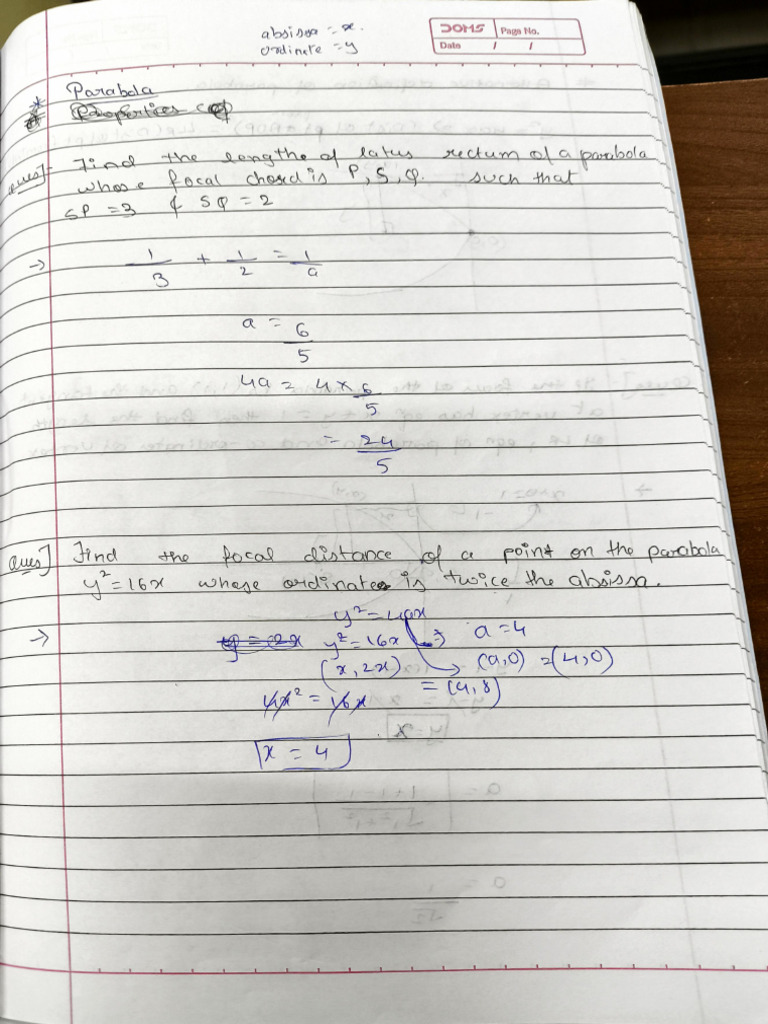 absissa = x.
ordinate = y
DOMS Page No.
Date / /
* Parabola
Properties of
Ques] Find the lengthe of latus rectum of a parabola
whose focal chord is P, S, Q. such that
SP = 3 & SQ = 2
→ 1/3 + 1/2 = 1/a
a = 6/5
4a = 4 × 6/5
= 24/5
Ques] Find the focal distance of a point on the parabola
y² = 16x whose ordinate is twice the absissa.
y² = 4ax
→ y = 2x y² = 16x → a = 4
(x, 2x) (a,0) = (4,0)
= (4,8)
4x² = 16x
x = 4